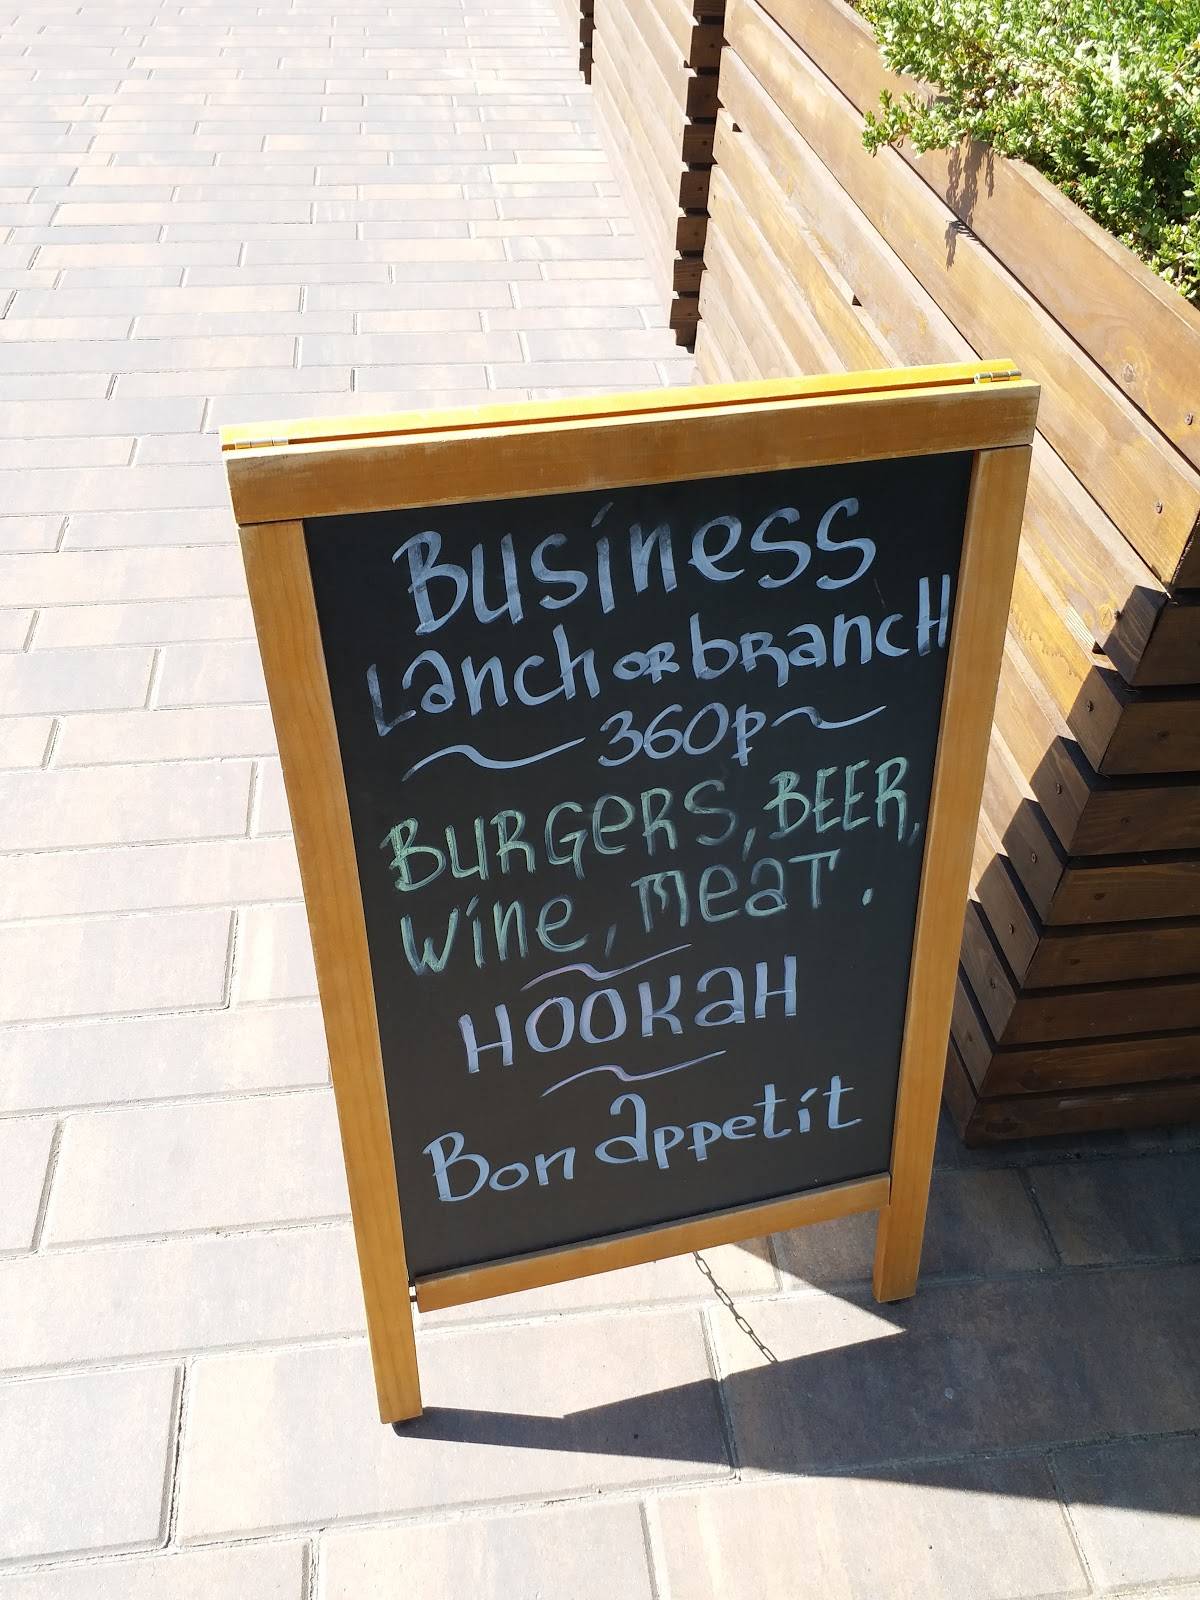 Business
Lanch or branch
~ 360₽ ~
BURGERS, BEER,
Wine, meat.
HOOKAH
Bon appetit